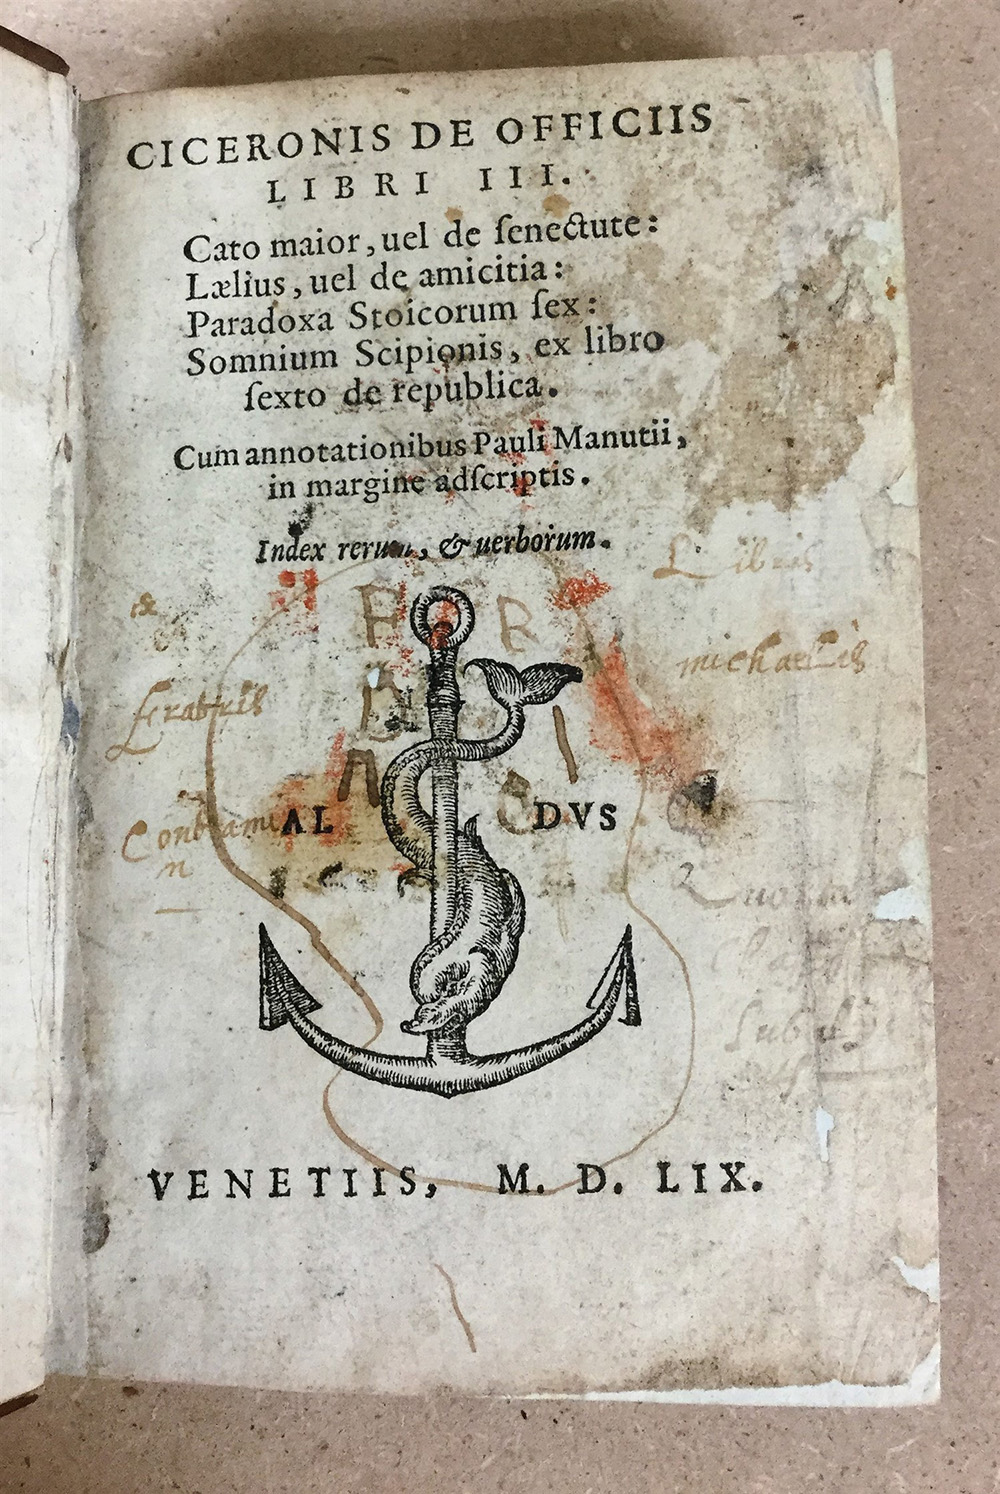 CICERONIS DE OFFICIIS
LIBRI III.
Cato maior, uel de ſenectute:
Lælius, uel de amicitia:
Paradoxa Stoicorum ſex:
Somnium Scipionis, ex libro
ſexto de republica.
Cum annotationibus Pauli Manutii,
in margine adſcriptis.
Index rerum, & uerborum.
Libris
michaelis
fratris
AL DVS
VENETIIS, M. D. LIX.